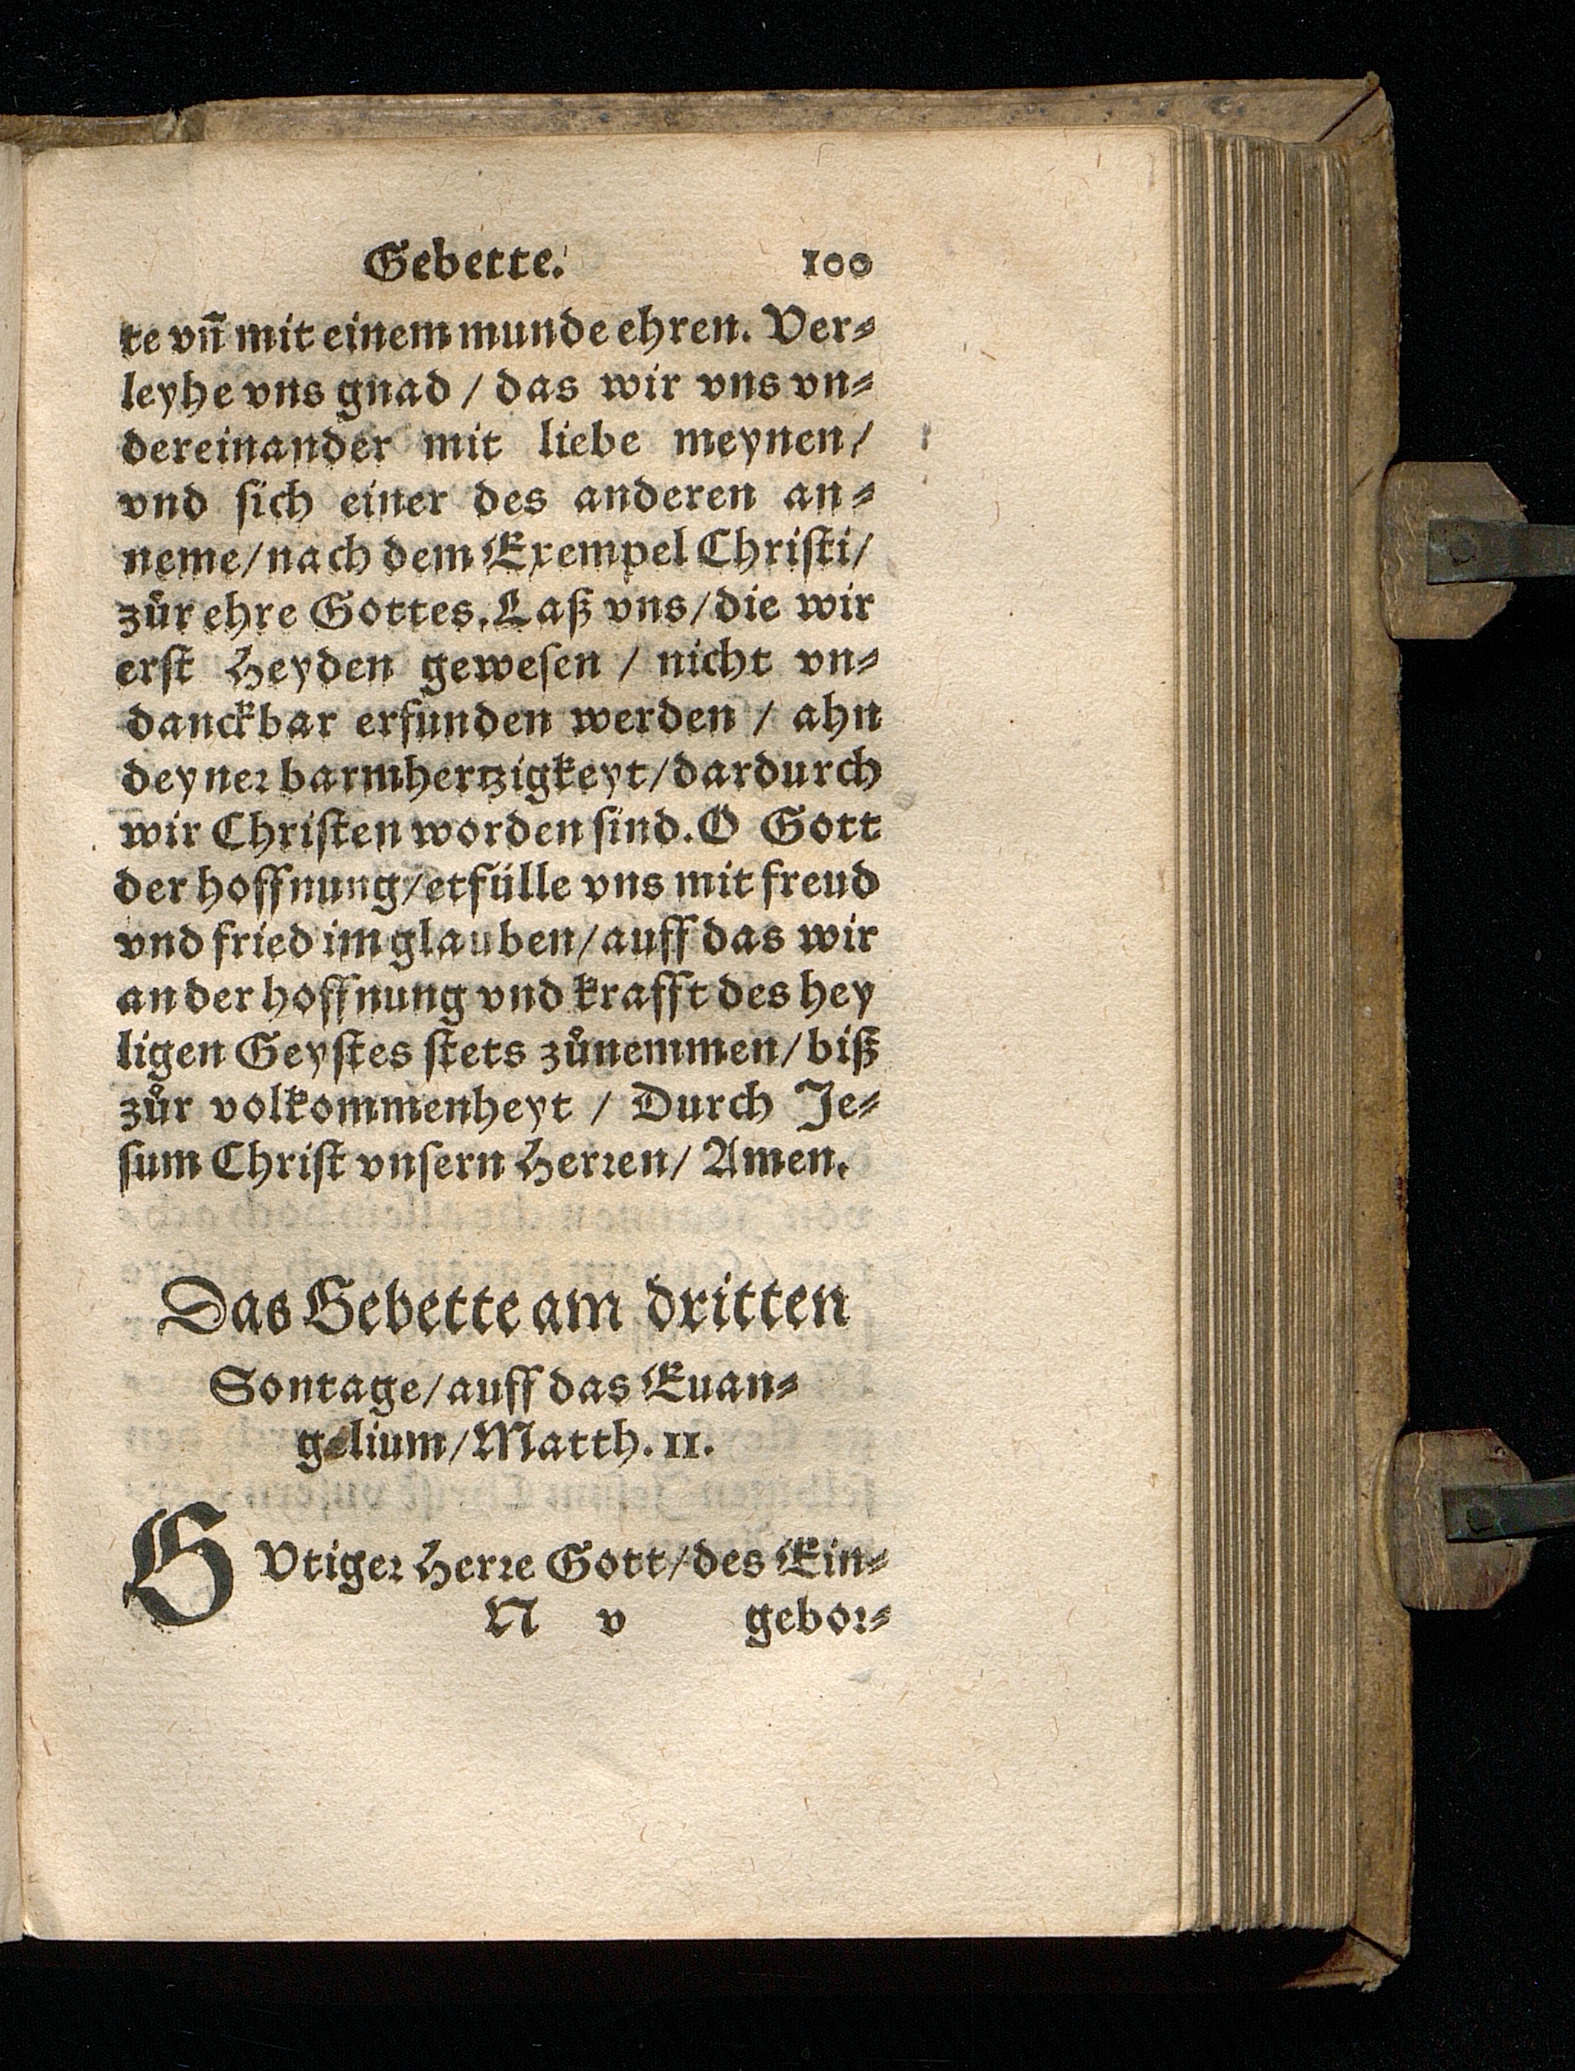 Gebette. 100
te vñ mit einem munde ehren. Ver⸗
leyhe vns gnad / das wir vns vn⸗
dereinander mit liebe meynen/
vnd sich einer des anderen an⸗
neme/nach dem Exempel Chriſti/
zůr ehre Gottes. Laß vns/die wir
erſt Heyden geweſen / nicht vn⸗
danckbar erfunden werden / ahn
deyneꝛ barmhertzigkeyt/dardurch
wir Chriſten worden ſind. O Gott
der hoffnung/etfülle vns mit freud
vnd fried im glauben/auff das wir
an der hoffnung vnd krafft des hey
ligen Geyſtes ſtets zůnemmen/biß
zůr volkommenheyt / Durch Je⸗
ſum Chriſt vnſern Herꝛen/ Amen.
Das Gebette am dritten
Sontage/auff das Euan⸗
gelium/Matth. 11.
GVtigeꝛ Herꝛe Gott/des Ein⸗
N v geboꝛ⸗